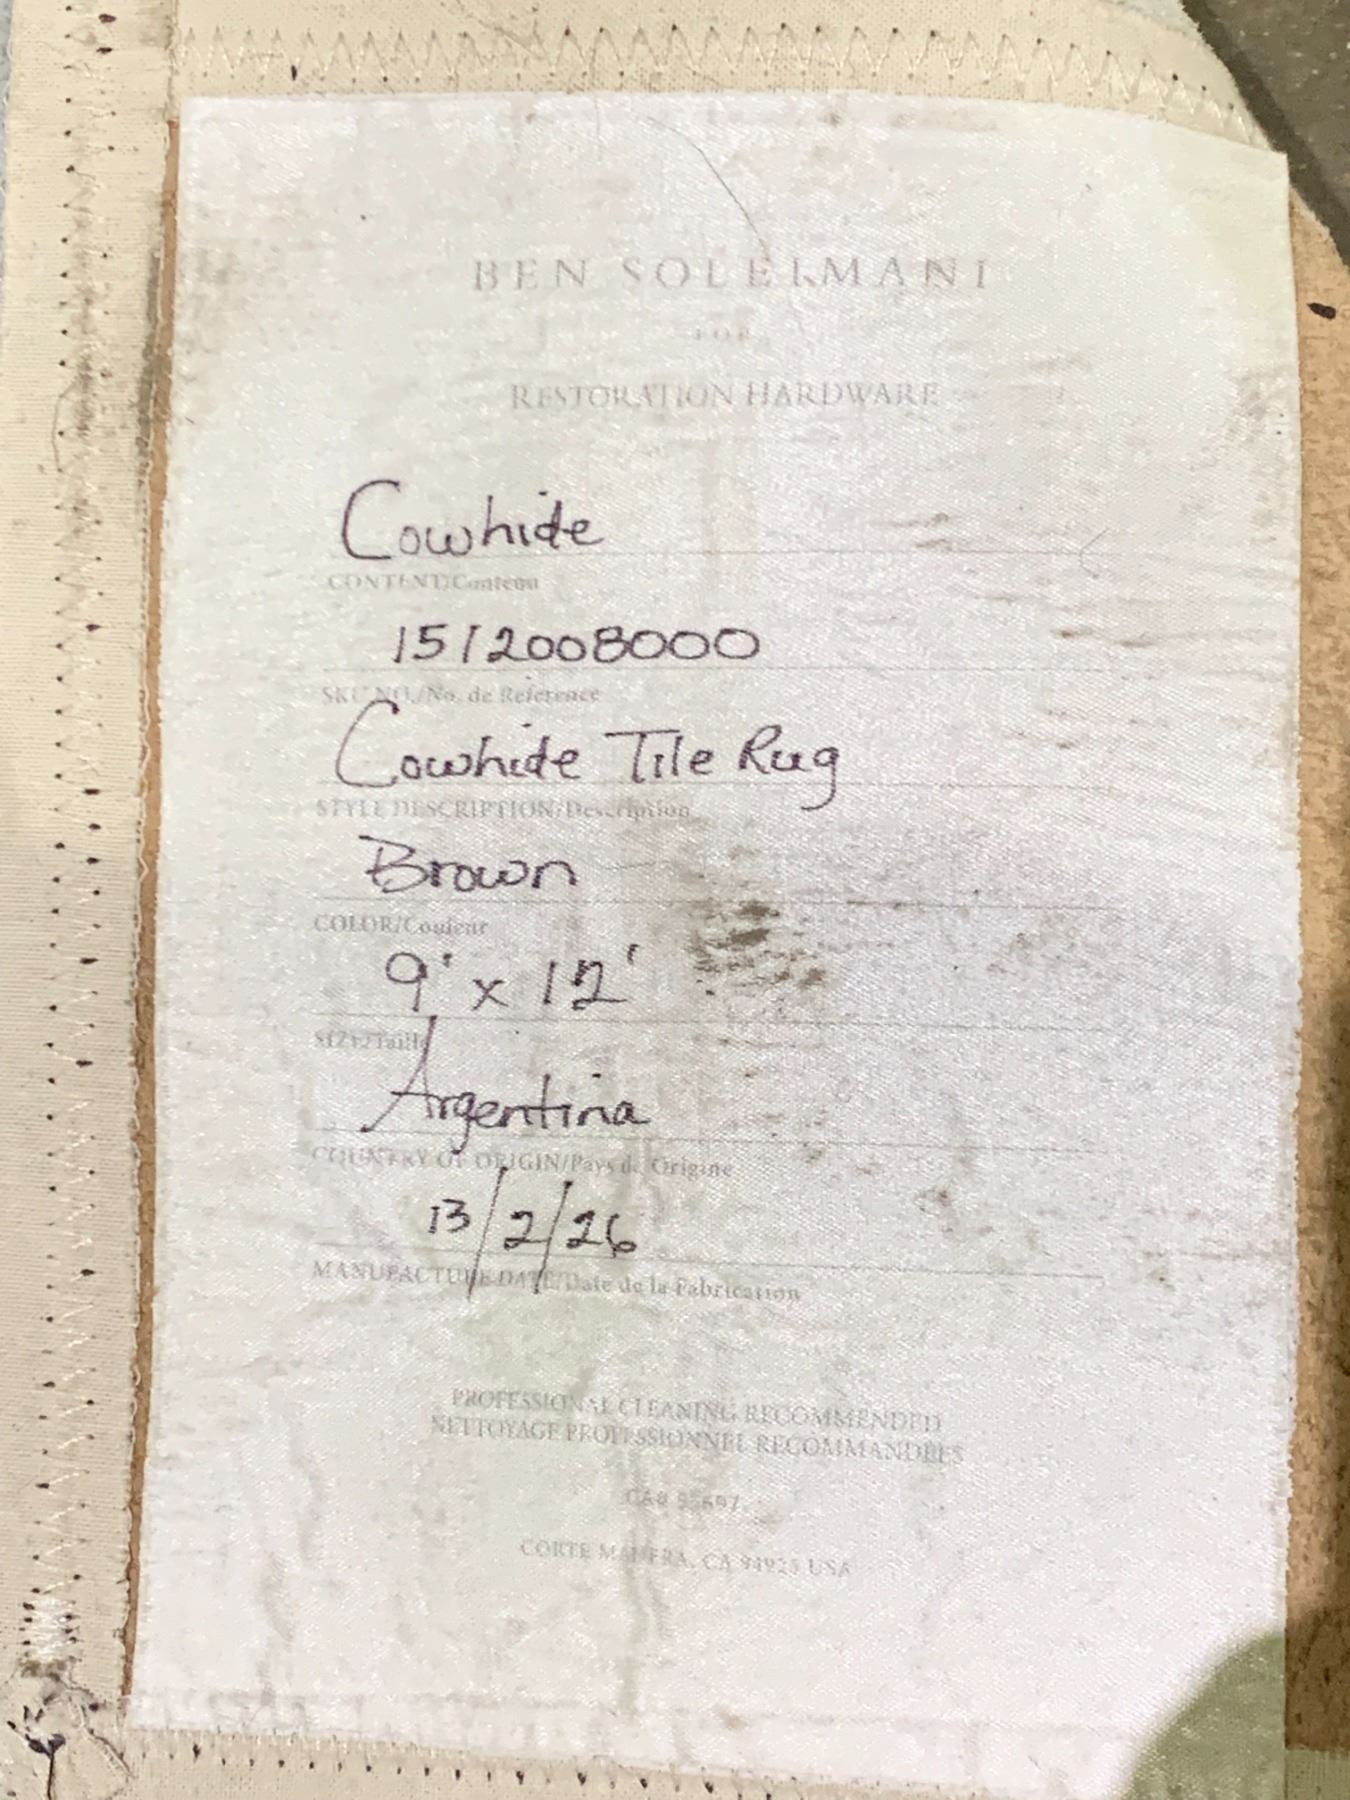 BEN SOLEIMANI
FOR
RESTORATION HARDWARE
Cowhide
CONTENT/Contenu
1512008000
SKU NO./No. de Reference
Cowhide Tile Rug
STYLE DESCRIPTION/Description
Brown
COLOR/Couleur
9' x 12'
SIZE/Taille
Argentina
COUNTRY OF ORIGIN/Pays de Origine
13/2/26
MANUFACTURE DATE/Date de la Fabrication
PROFESSIONAL CLEANING RECOMMENDED
NETTOYAGE PROFESSIONNEL RECOMMANDEES
CA#
CORTE MADERA, CA 94925 USA